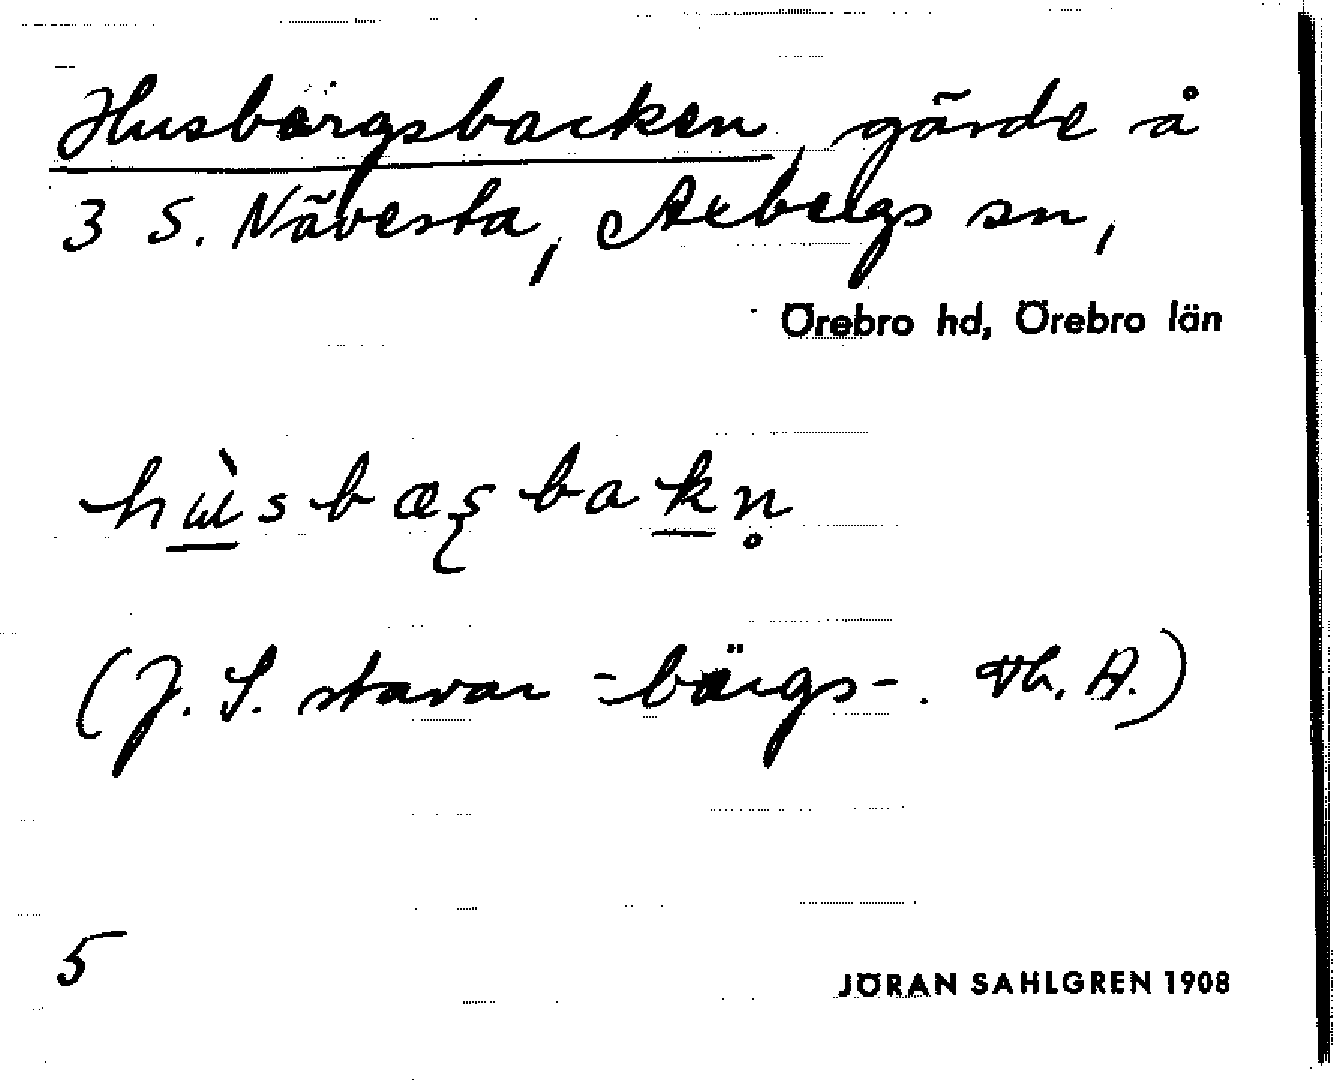 Husbergsbacken, gärde å
3 S. Nävesta, Axbergs sn,
Örebro hd, Örebro län
hùsbæʂbakn̥
(J. S. stavar -bärgs-. Th. A.)
5
JÖRAN SAHLGREN 1908